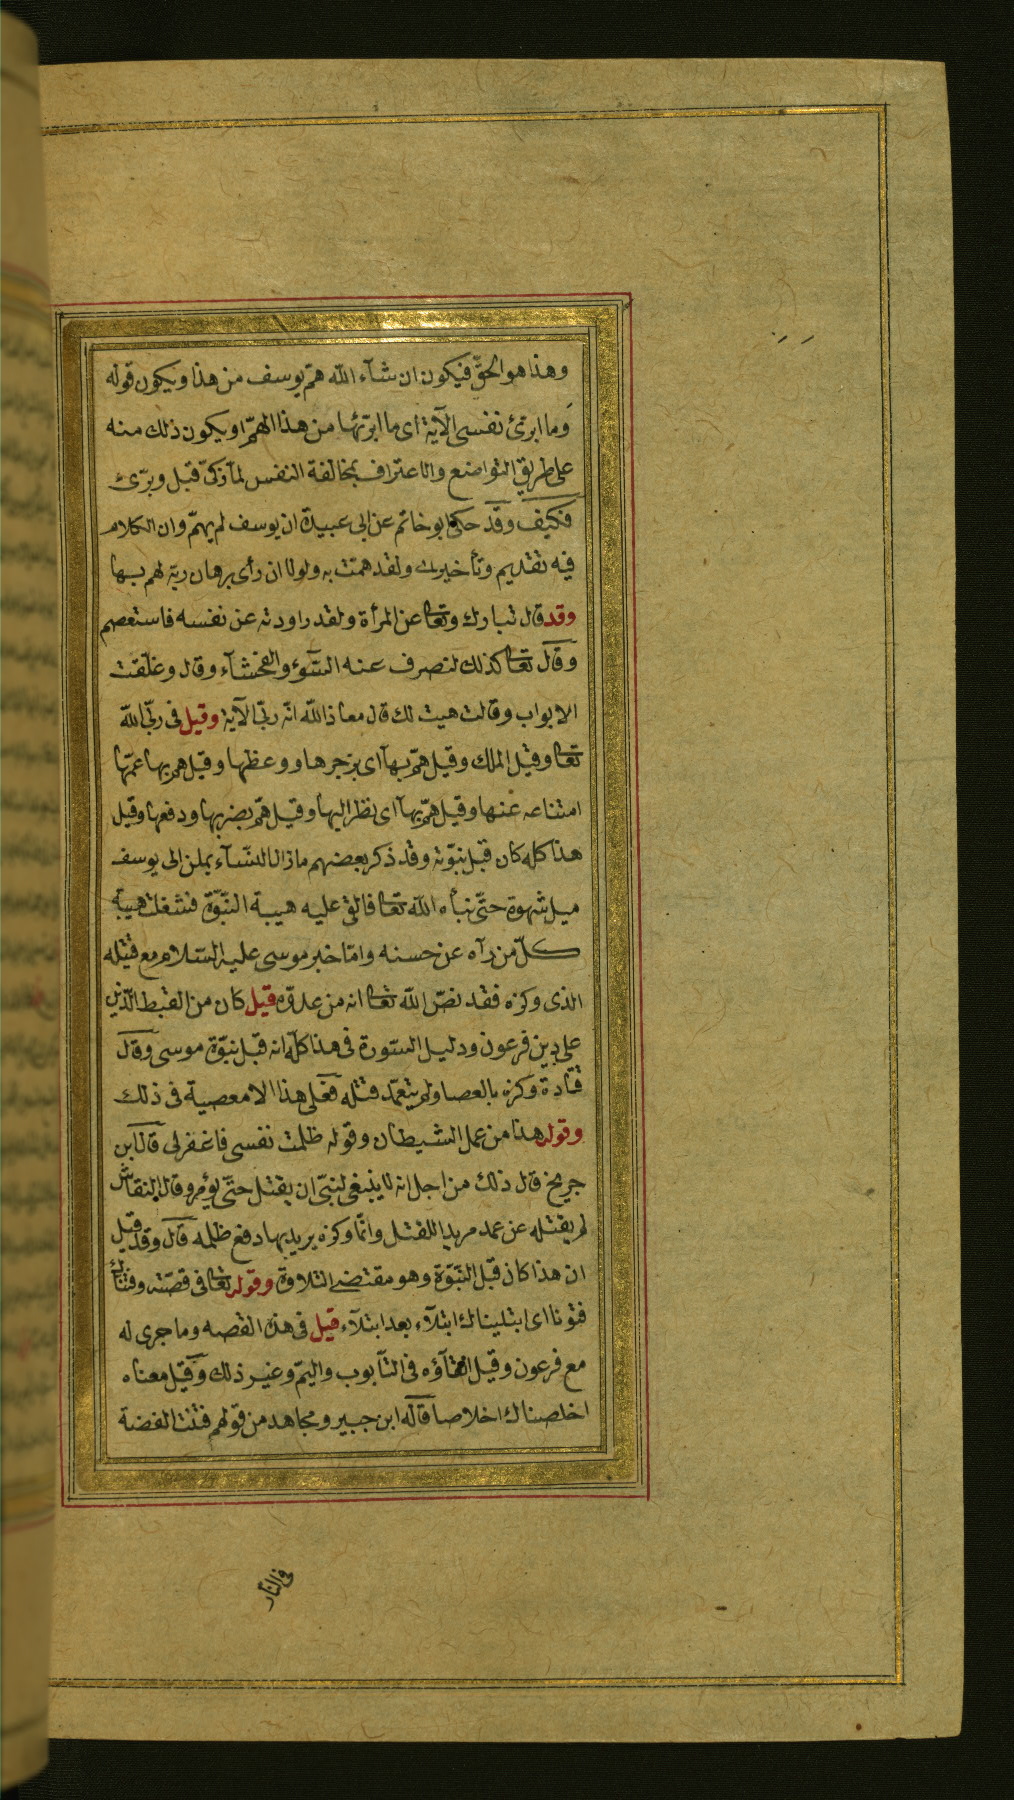 وهذا هو الحقّ فيكون ان شآء الله همّ يوسف من هذا ويكون قوله
وما ابرئ نفسى الآية اى ما ابرّئها من هذا الهمّ او يكون ذلك منه
على طريق التواضع والاعتراف بمخالفة النفس لما زكّى قبل وبرّئ
فكيف وقد حكى ابو حاتم عن ابى عبيدة ان يوسف لم يهمّ وان الكلام
فيه تقديم وتأخير اى ولقد همت به ولولا ان رأى برهان ربّه لهم بها
وقد قال تبارك وتعالى عن المرأة ولقد راودته عن نفسه فاستعصم
وقال تعالى كذلك لنصرف عنه السّوء والفحشآء وقال وغلّقت
الابواب وقالت هيت لك قال معاذ الله انّه ربّى الآية وقيل فى ربّى الله
تعالى وقيل الملك وقيل همّ بها اى بزجرها ووعظها وقيل همّ بها غمّها
امتناعه عنها وقيل همّ بها اى نظر اليها وقيل همّ بضربها ودفعها وقيل
هذا كله كان قبل نبوّته وقد ذكر بعضهم ما زال النّسآء يملن الى يوسف
ميل شهوة حتّى نبأه الله تعالى فالقى عليه هيبة النّبوّة فشغلت هيبته
كلّ من رآه عن حسنه وامّا خبر موسى عليه السّلام مع قتيله
الذى وكزه فقد نصّ الله تعالى انه من عدوّه قيل كان من القبط الّذين
على دين فرعون ودليل السّورة فى هذا كلّه انه قبل نبوّة موسى وقال
قتادة وكزه بالعصا ولم يتعمّد قتله فعلى هذا لا معصية فى ذلك
وقوله هذا من عمل الشيطان وقوله ظلمت نفسى فاغفر لى قال ابن
جريج قال ذلك من اجل انه لا ينبغى لنبىّ ان يقتل حتّى يؤمر وقال النقاش
لم يقتله عن عمد مريدا للقتل وانّما وكزه يريد بها دفع ظلمه قال وقد قيل
ان هذا كان قبل النّبوّة وهو مقتضى التلاوة وقوله تعالى فى قصّته وفتنّاك
فتونا اى ابتليناك ابتلآء بعد ابتلآء قيل فى هذه القصه وما جرى له
مع فرعون وقيل القآؤه فى التّابوت واليمّ وغير ذلك وقيل معناه
اخلصناك اخلاصا قاله ابن جبير ومجاهد من قولهم فتنت الفضة
فى النار